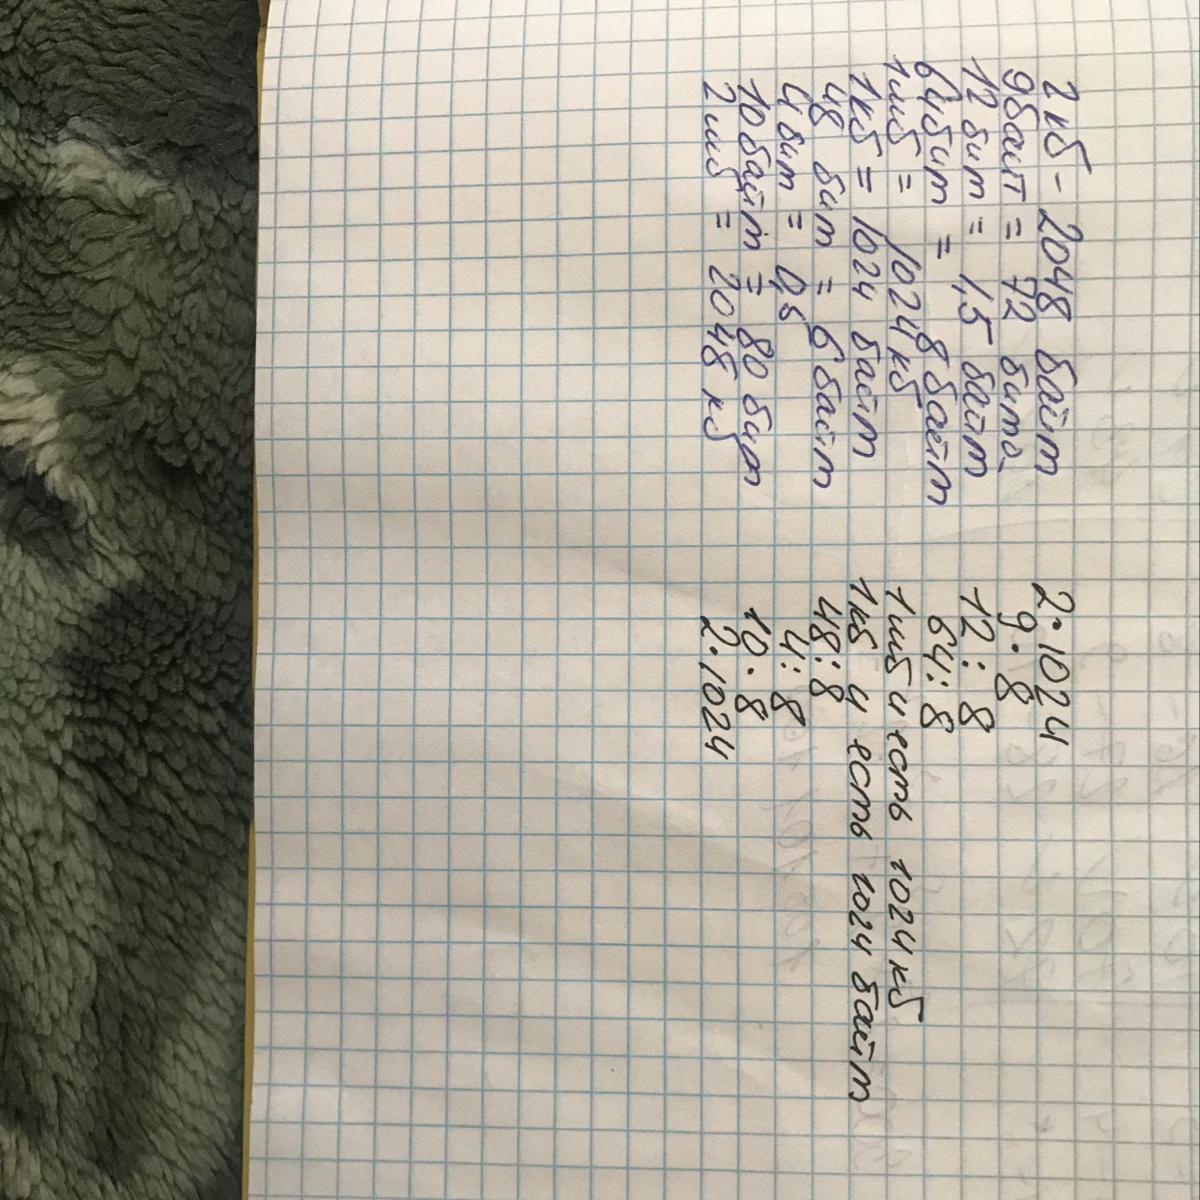 2 кб - 2048 байт 2·1024
9байт = 72 бита. 9·8
12 бит = 1,5 байт 12:8
64бит = 8 байт 64:8
1мб = 1024кб 1мб и есть 1024 кб
1кб = 1024 байт 1кб и есть 1024 байт
48 бит = 6 байт 48:8
4 бит = 0,5 4:8
10 байт = 80 бит 10·8
2мб = 2048 кб 2·1024